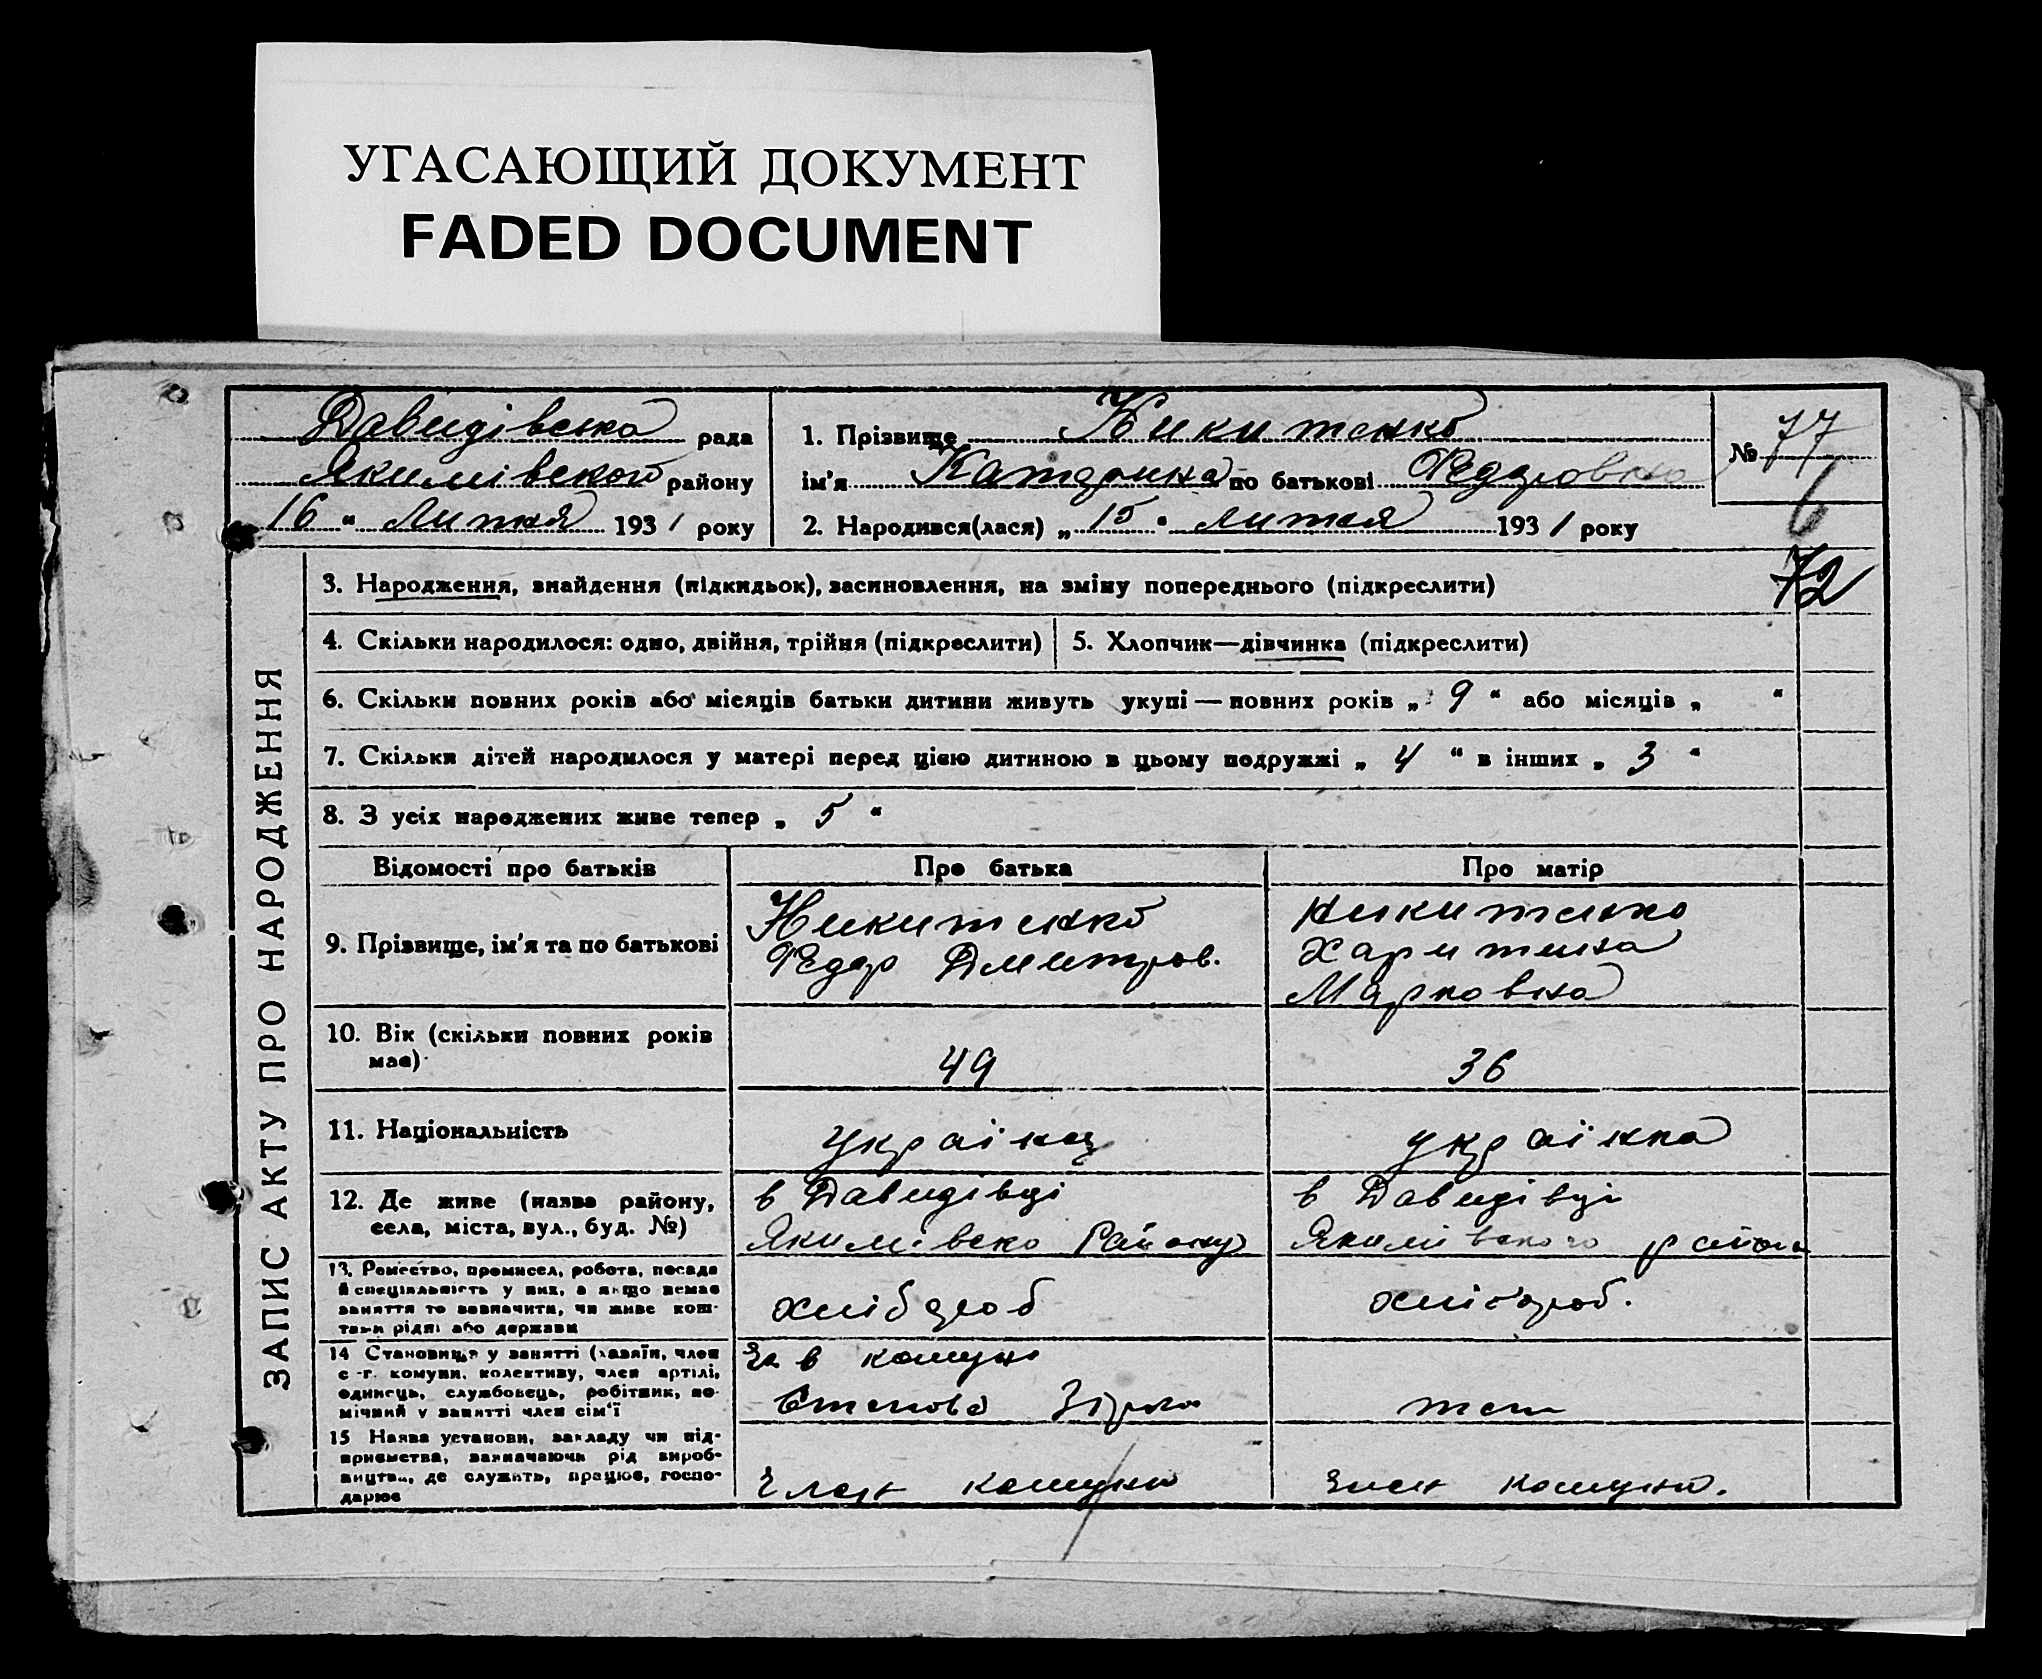 УГАСАЮЩИЙ ДОКУМЕНТ
FADED DOCUMENT
Давидівська рада
Якимівской району
16 " Липня 1931 року
1. Прізвище Никитенко
ім'я Катерина по батькові Федоровна
2. Народився(лася) „ 15 " липня 1931 року
№ 77
6
72
ЗАПИС АКТУ ПРО НАРОДЖЕННЯ
3. Народження, знайдення (підкидьок), засиновлення, на зміну попереднього (підкреслити)
4. Скільки народилося: одно, двійня, трійня (підкреслити)
5. Хлопчик—дівчинка (підкреслити)
6. Скільки повних років або місяців батьки дитини живуть укупі — повних років „ 9 " або місяців „ "
7. Скільки дітей народилося у матері перед цією дитиною в цьому подружжі „ 4 " в інших „ 3 "
8. З усіх народжених живе тепер „ 5 "
Відомості про батьків
Про батька
Про матір
9. Прізвище, ім'я та по батькові
Никитенко
Федор Дмитров.
Никитенко
Харитина
Марковна
10. Вік (скільки повних років
має)
49
36
11. Національність
україец
українка
12. Де живе (назва району,
села, міста, вул., буд. №)
в Давидівці
Якимівско Району
в Давидівці
Якимівского району
13. Ремество, промисел, робота, посада
й спеціяльність у них, а якщо немає
заняття то зазначити, чи живе кош-
тами рідні або держави
хлібороб
хлібороб.
14 Становище у занятті (хазяїн, член
с.-г. комуни, колективу, член артілі,
одинець, службовець, робітник, по-
мічний у занятті член сім'ї
в комуні
Степова Зірка
теж
15 Назва установи, закладу чи під-
приємства, зазначаючи рід вироб-
ництва, де служить, працює, госпо-
дарює
Член комуни
Член комуни.